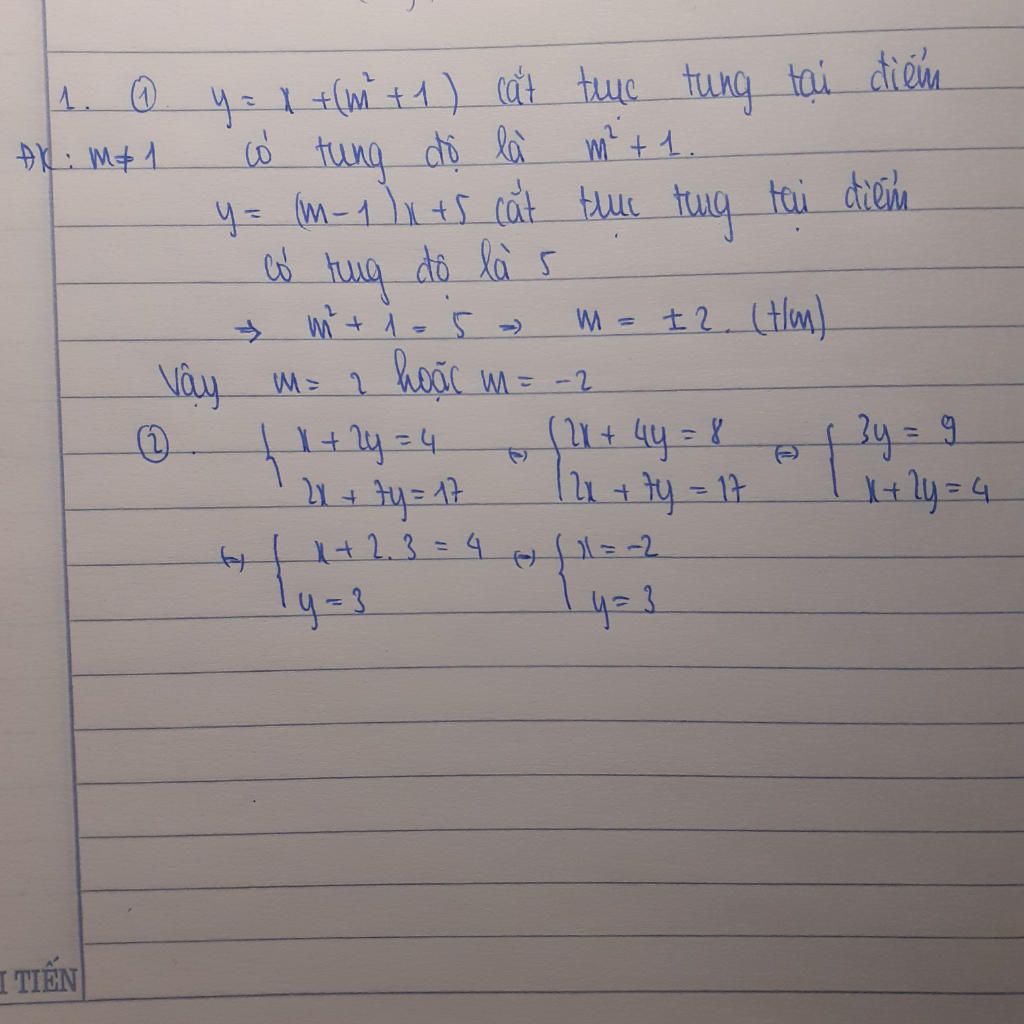 1. ① y = x + (m² + 1) cắt trục tung tại điểm
ĐK: m ≠ 1 có tung độ là m² + 1.
y = (m - 1)x + 5 cắt trục tug tại điểm
có tug độ là 5
⇒ m² + 1 = 5 ⇒ m = ± 2. (t/m)
Vậy m = 2 hoặc m = -2
② . { x + 2y = 4 ⇔ { 2x + 4y = 8 ⇔ { 3y = 9
2x + 7y = 17 2x + 7y = 17 x + 2y = 4
⇔ { x + 2.3 = 4 ⇔ { x = -2
y = 3 y = 3
I TIẾN